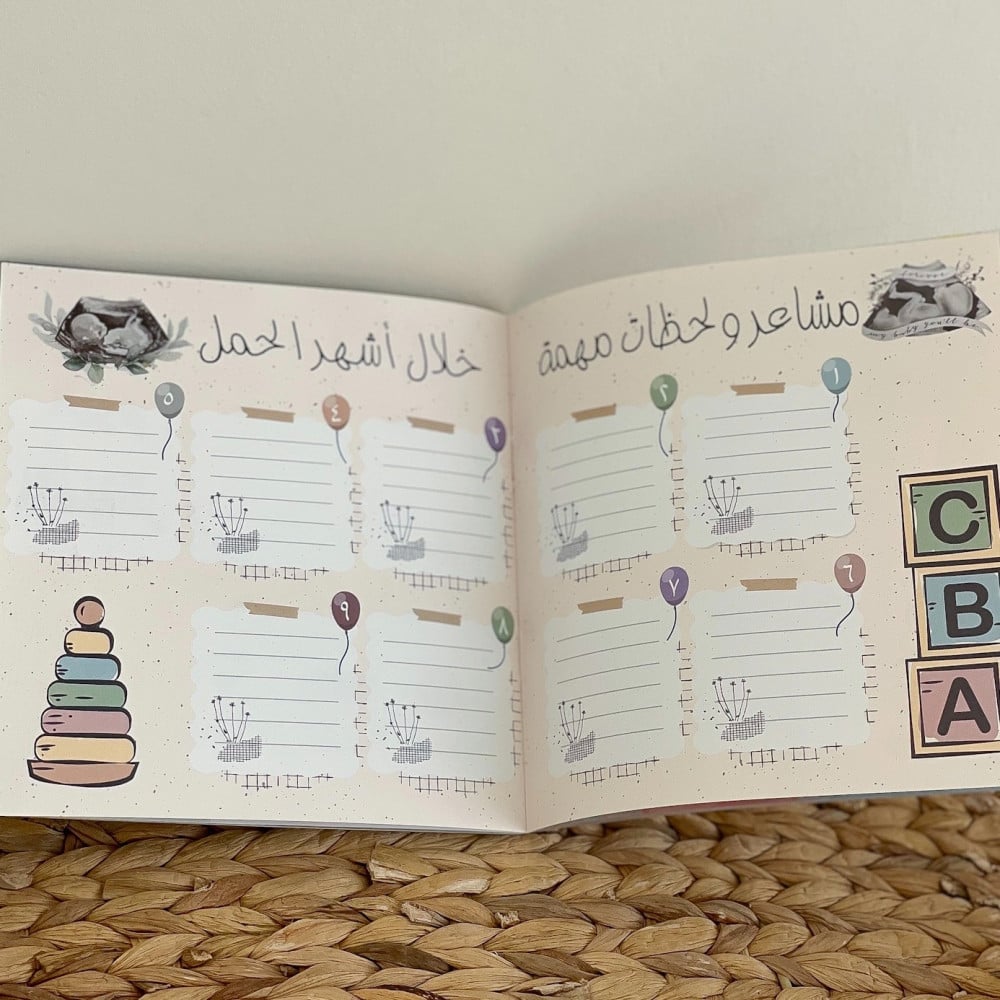 مشاعر ولحظات مهمة خلال أشهر الحمل
forever
my baby you'll be
١ ٢ ٣ ٤ ٥
٦ ٧ ٨ ٩
C
B
A